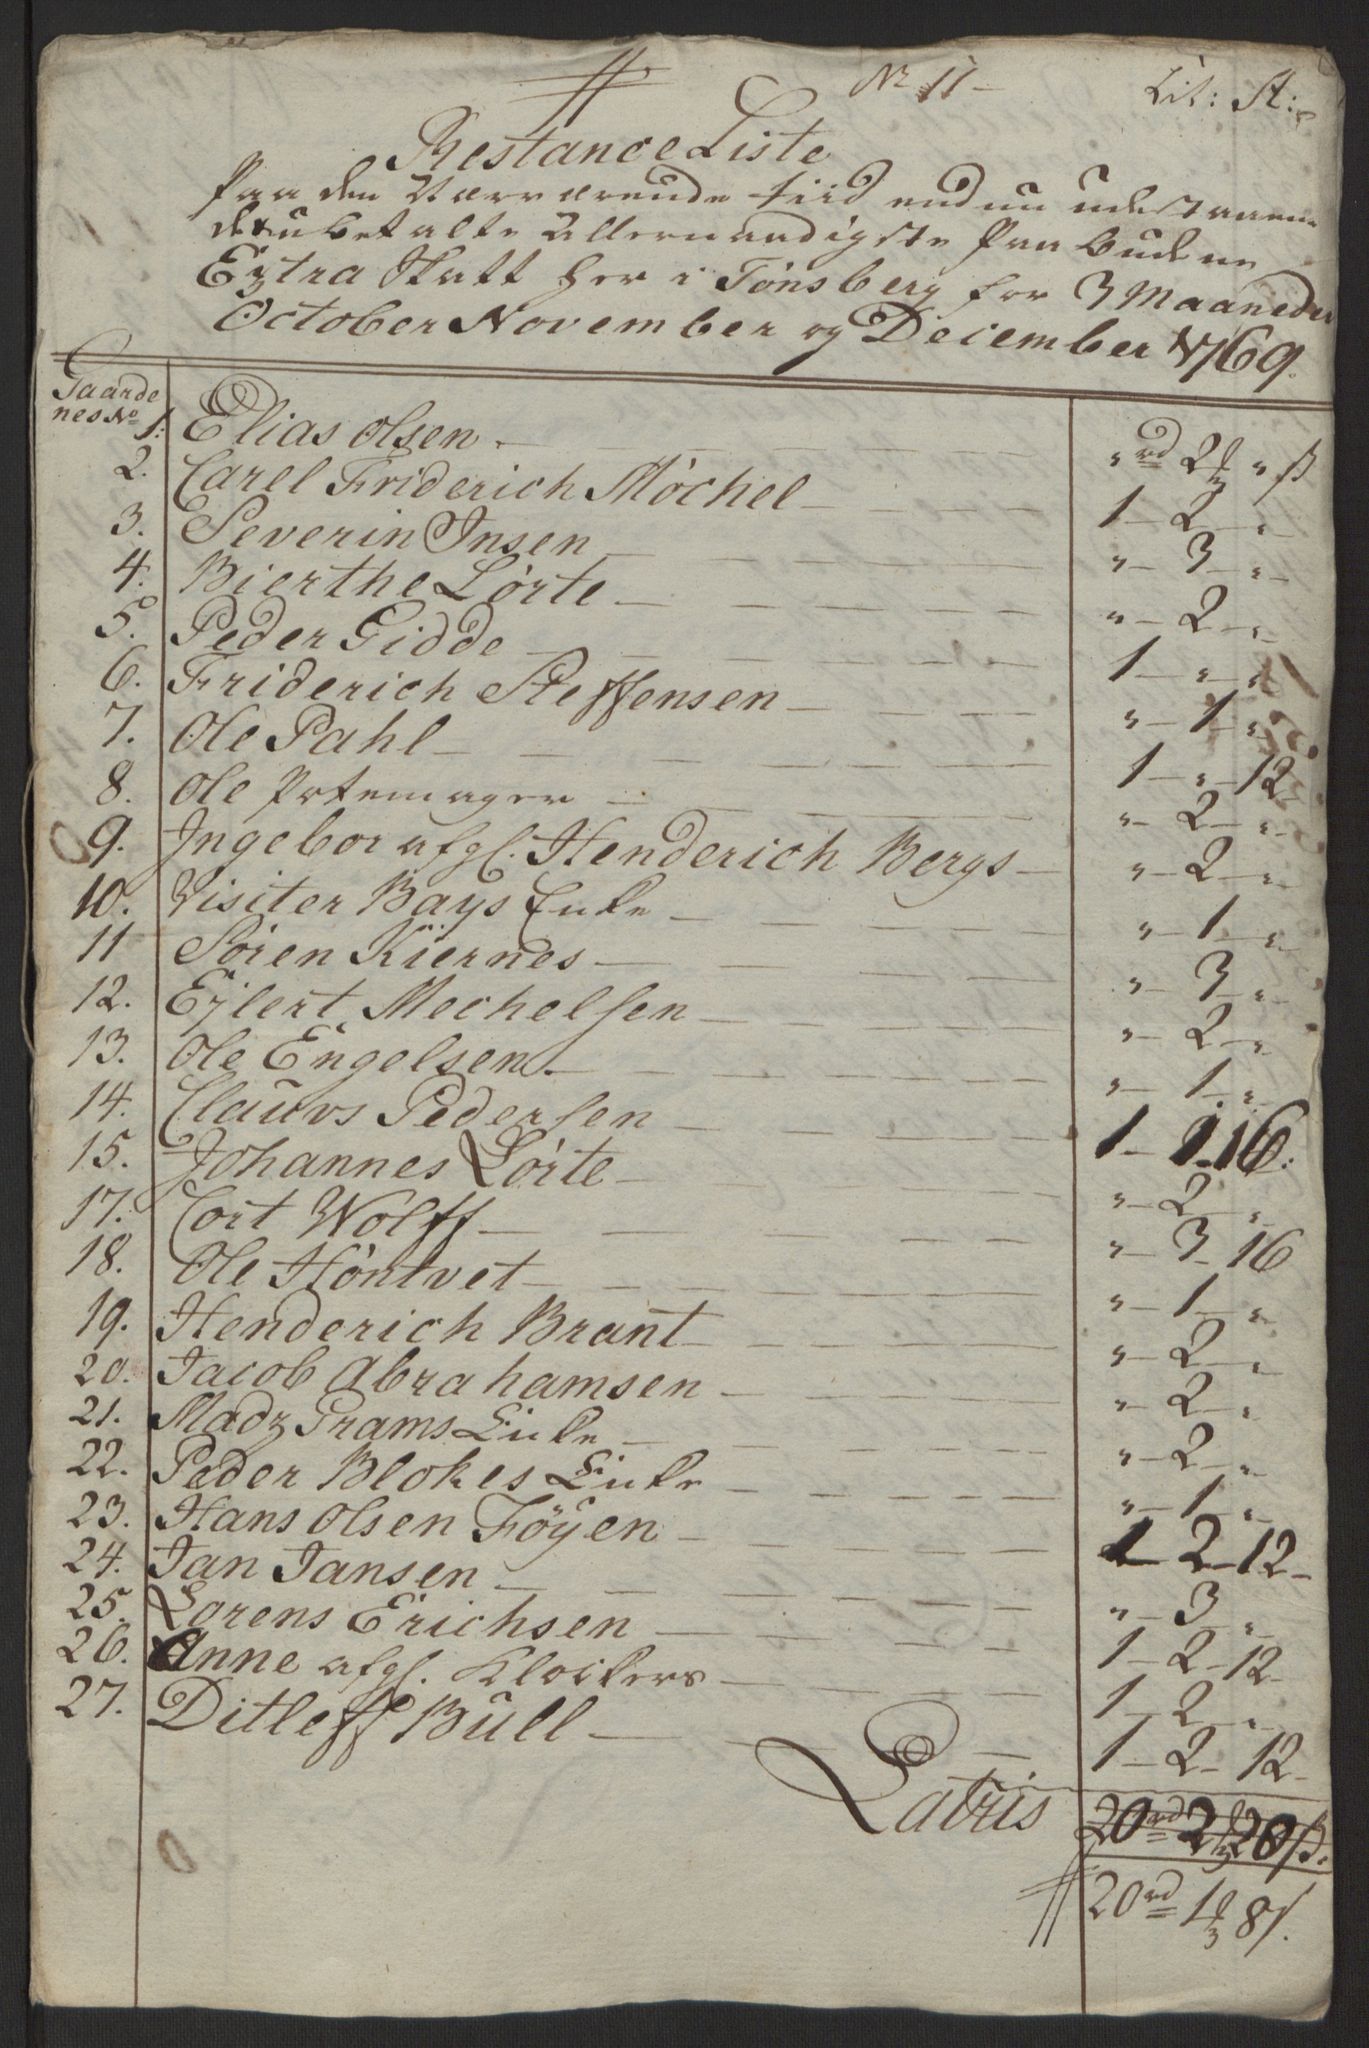 No 11 - Lit: A:
Restance Liste
Paa den Nærværende tiid endnu udestaaen
de ubetalte Allernaadigste Paabudene
Extra Skatt her i Tønsberg for 3 Maaneder
October November og December 1769.
Gaarde
nes No
1: Elias Olsen - " rd 2 ƒ " ß
2. Carel Friderich Möchel - 1 - 2 - "
3. Severin Insen - " - 3 - "
4. Bierthe Lörte - " - 2 - "
5. Peder Gidde - 1 - " - "
6. Friderich Steffensen - " - 1 - "
7. Ole Pahl - 1 - " - 12
8. Ole Potemager - " - 2 - "
9. Ingebor afgl. Henderich Bergs - " - 2 - "
10. Visiter Bays Enke - " - 1 - "
11 Sören Kiernes - " - 3 - "
12. Ejlert Mechelsen - " - 2 - "
13. Ole Engelsen - " - 1 - "
14. Clauvs Pedersen - 1 - 1 - 16:
15. Johannes Lörte - " - 2 - "
17. Cort Wolff - " - 3 - 16
18. Ole Höntvet - " - 1 - "
19. Henderich Brant - " - 2 - "
20. Jacob Abrahamsen - " - 2 - "
21. Madz Prams Enke - " - 2 - "
22. Peder Blokes Enke - " - 1 - "
23. Hans Olsen Föÿen - 1 - 2 - 12 -
24. Jan Jansen - " - 3 - "
25. Lorens Erichsen - 1 - 2 - 12 -
26. Anne afgl. Klockers - 1 - 2 - "
27. Ditleff Bull - 1 - 2 - 12 -
Latris 20 rd 2 ƒ 20 ß.
20 rd 1 ƒ 8 ß.